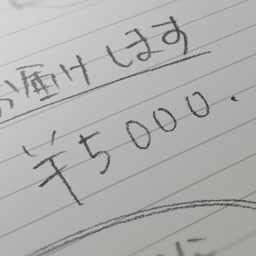 お届けします
￥5000.
に